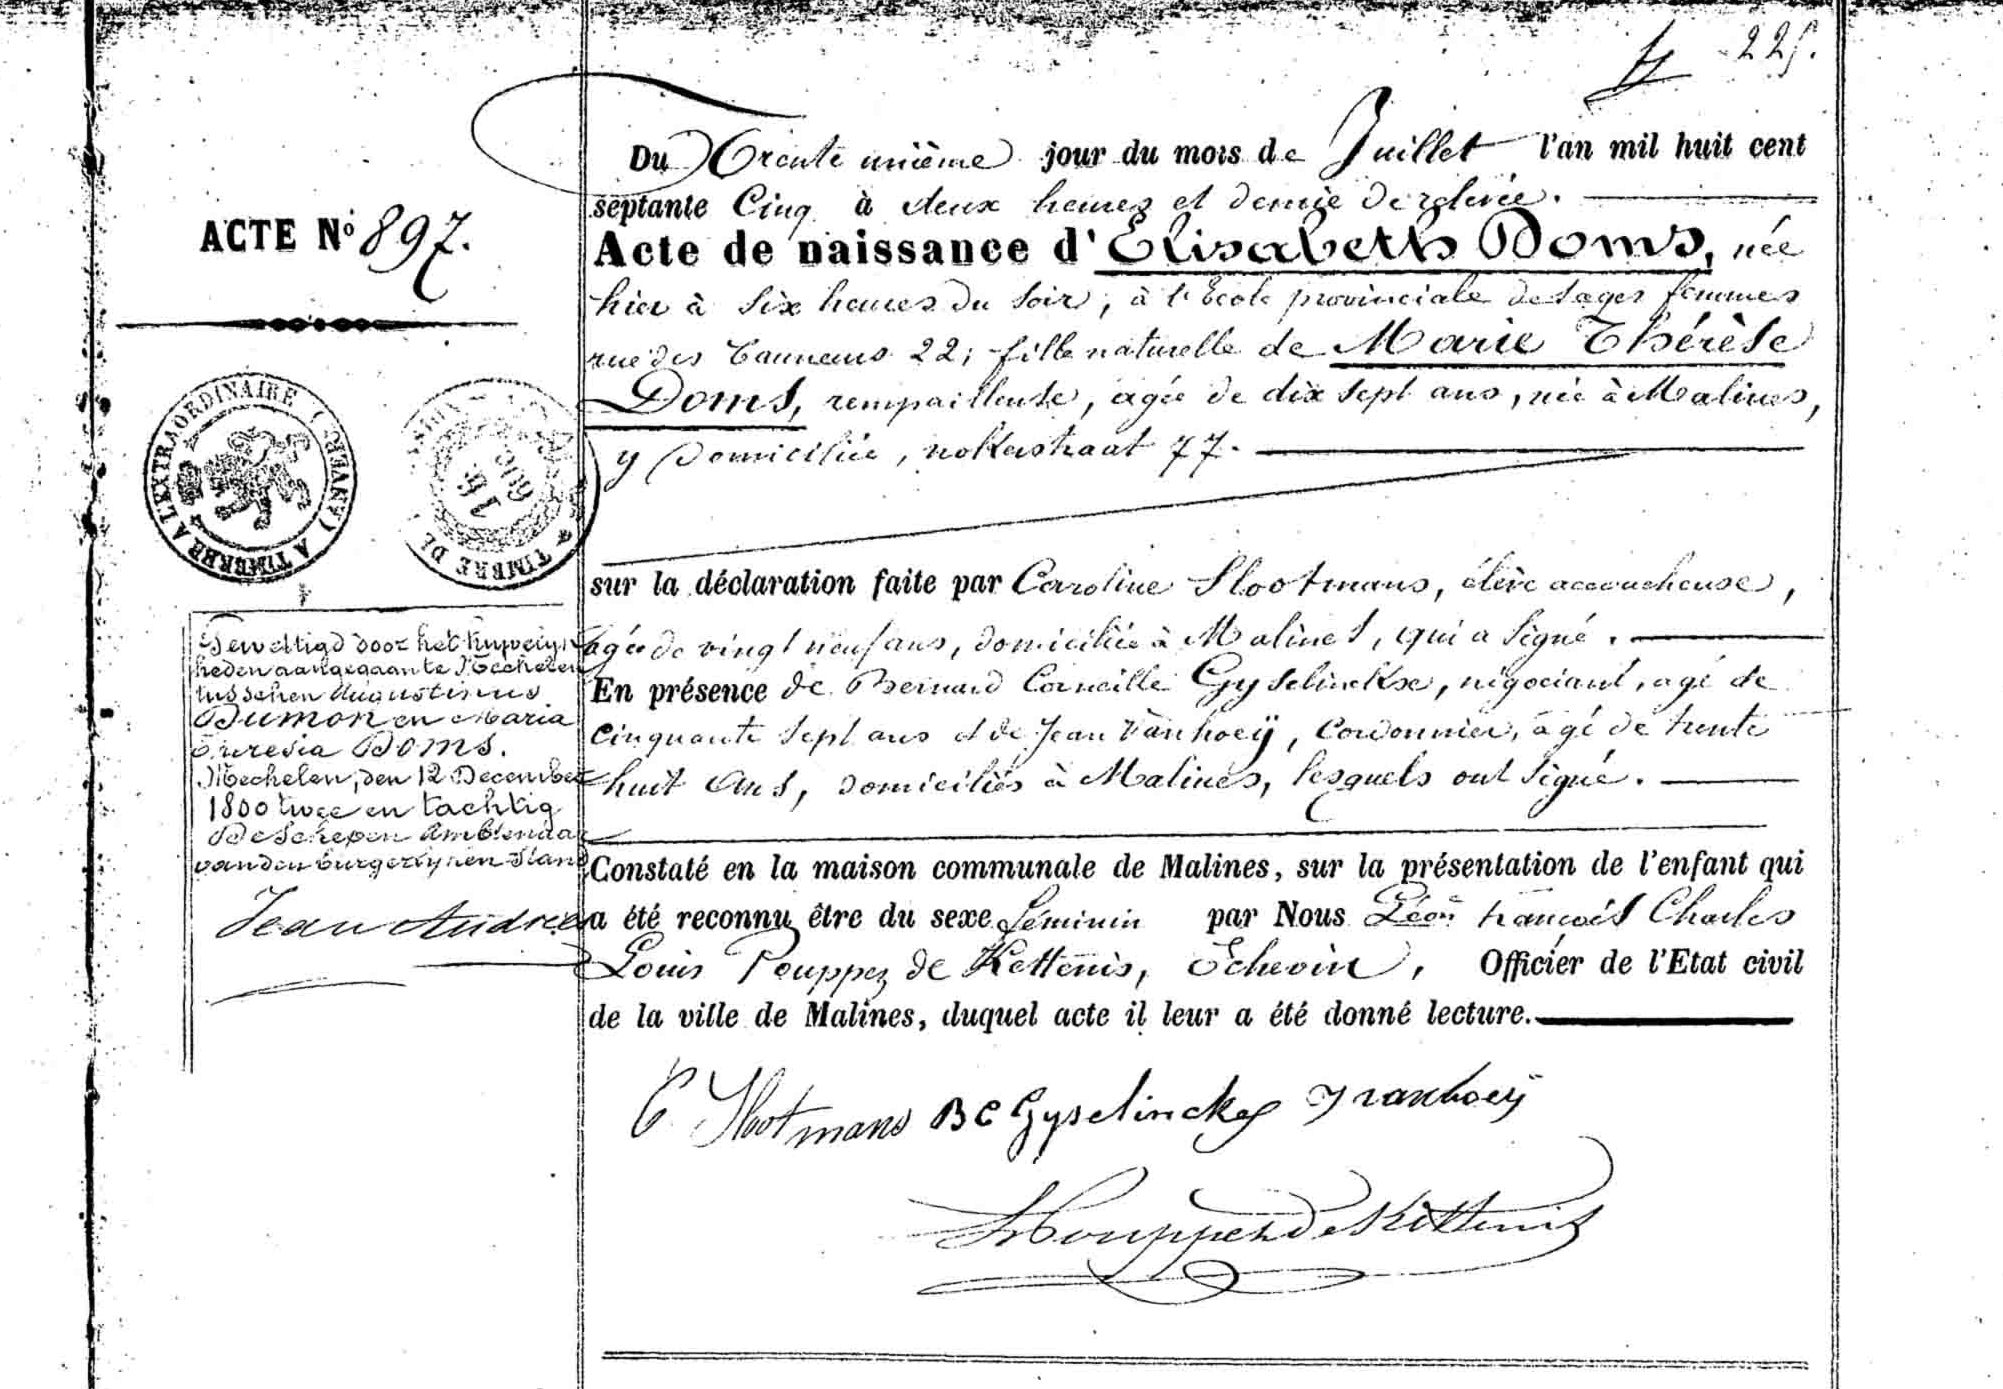 225.
Du Trente unième jour du mois de Juillet l'an mil huit cent
septante Cinq à deux heures et demie de relevée.
ACTE No 897.
Acte de naissance d'Elisabeth Doms, née
hier à six heures du soir, à l'Ecole provinciale de sages femmes
rue des Tanneurs 22; fille naturelle de Marie Thérèse
Doms, rempailleuse, agée de dix sept ans, née à Malines,
y domiciliée, nokkerstraat 77.
TIMBRE A L'EXTRAORDINAIRE (ANVERS) A
TIMBRE DE
sur la déclaration faite par Caroline Slootmans, élève accoucheuse,
agée de vingt neuf ans, domiciliée à Malines, qui a signé.
En présence de Bernard Corneille Gyselinckx, négociant, agé de
cinquante sept ans et de Jean Vanhoeÿ, Cordonnier, âgé de trente
huit ans, domiciliés à Malines, lesquels ont signé.
Constaté en la maison communale de Malines, sur la présentation de l'enfant qui
a été reconnu être du sexe féminin par Nous Léon François Charles
Louis Pouppez de Kettenis, Echevin, Officier de l'Etat civil
de la ville de Malines, duquel acte il leur a été donné lecture.
Gewettigd door het huwelijk
heden aangegaan te Mechelen
tusschen Augustinus
Dumon en Maria
Theresia Doms.
Mechelen, den 12 December
1800 twee en tachtig
De Schepen Ambtenaar
van den burgerlijken Stand
Jean Andries
C Slootmans BC Gyselinckx J vanhoeÿ
Pouppez de Kettenis